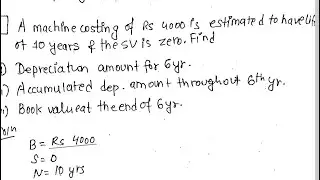 A machine costing of Rs 4000 is estimated to have life
of 10 years & the SV is zero. Find
) Depreciation amount for 6yr.
) Accumulated dep. amount throughout 6th yr.
) Book value at the end of 6yr.
B = Rs 4000
S = 0
N = 10 yrs